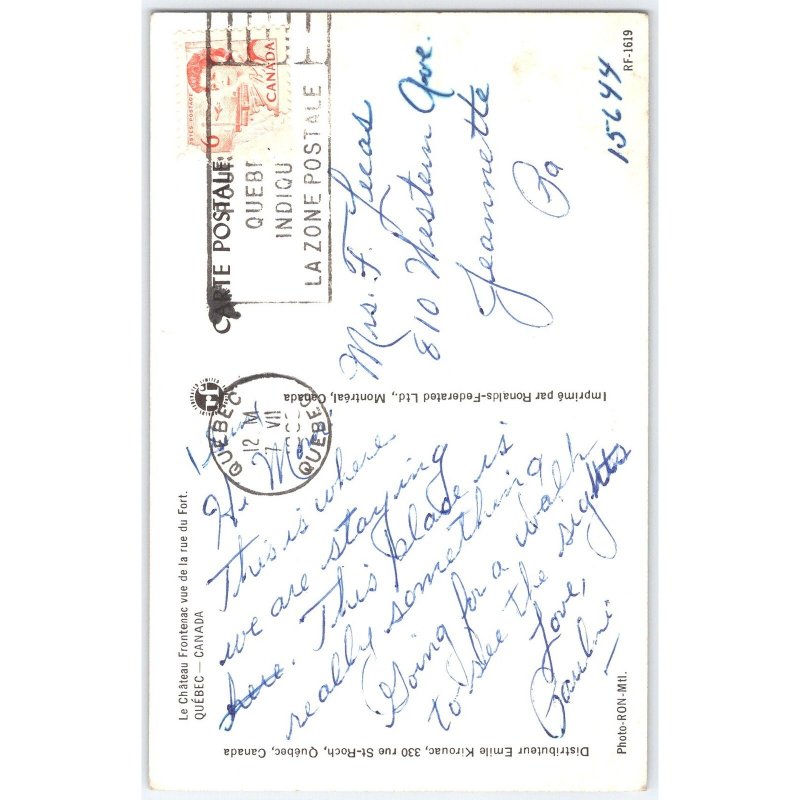 Le Château Frontenac vue de la rue du Fort.
QUÉBEC — CANADA
Hi Mom
This is where
we are staying
here. This place is
really something
Going for a walk
to see the sights
Love,
Pauline
Distributeur Emile Kirouac, 330 rue St-Roch, Québec, Canada
Photo-RON-Mtl.
Imprimé par Ronalds-Federated Ltd., Montréal, Canada
CARTE POSTALE
POSTES POSTAGE
6
CANADA
QUÉBEC
12 M
7 VII
QUEBEC
QUEBE
INDIQU
LA ZONE POSTALE
Mrs. F. Lucas
810 Western Ave.
Jeannette
Pa
15644
RF-1619